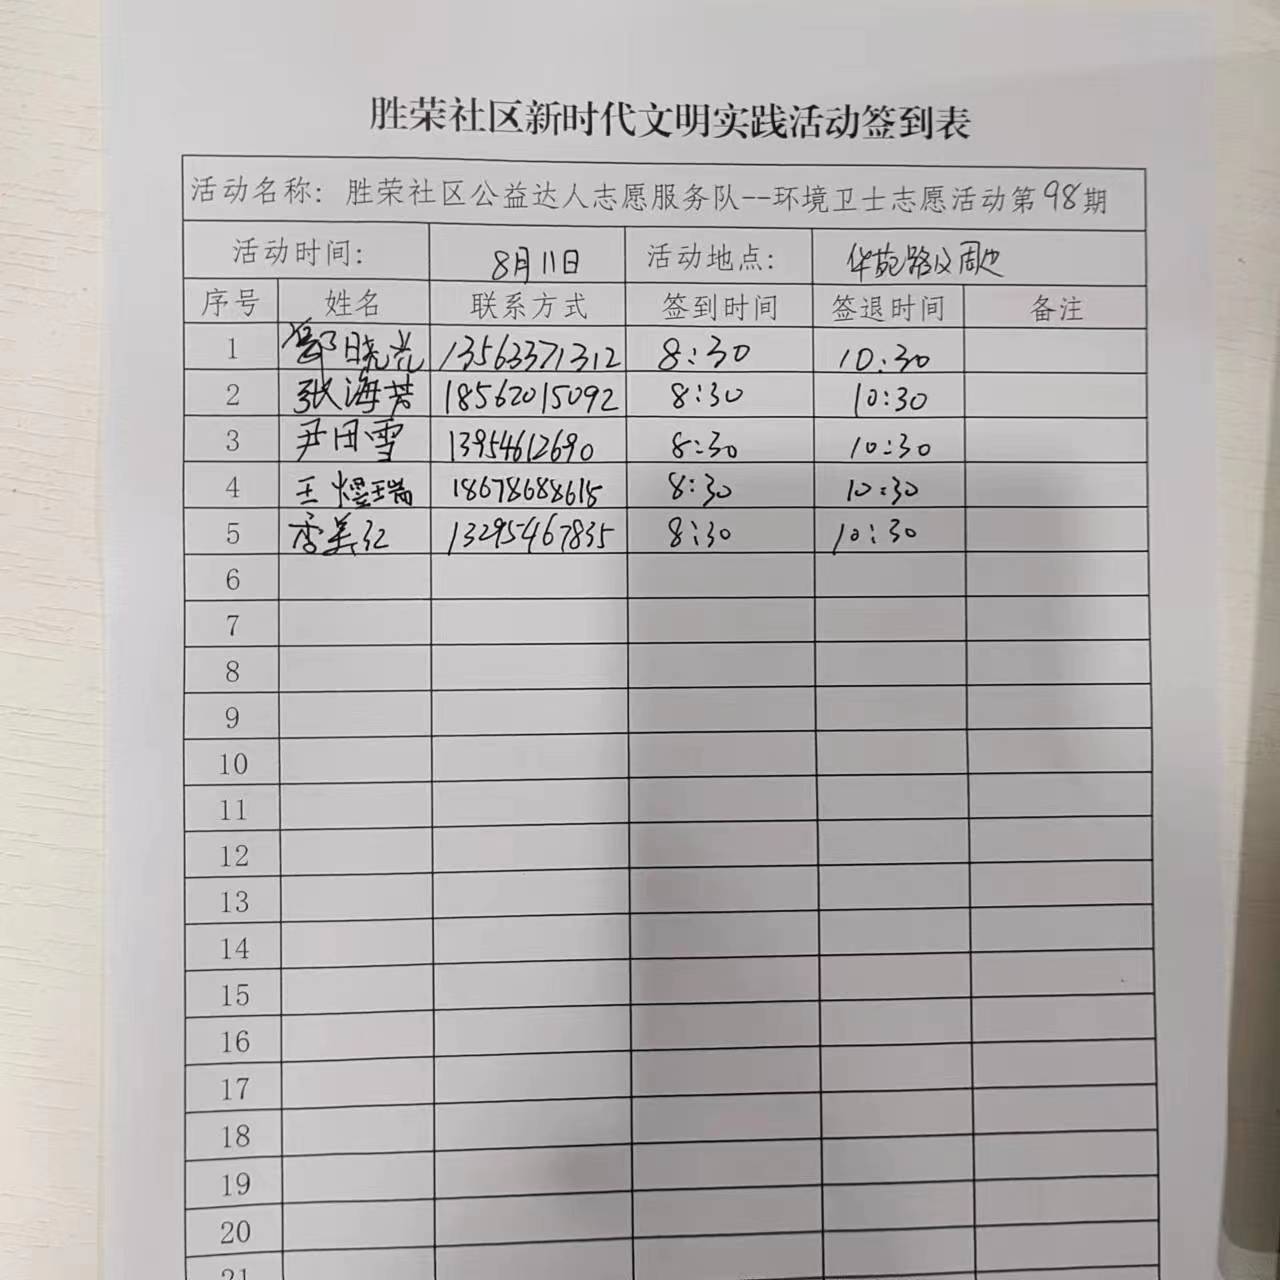 胜荣社区新时代文明实践活动签到表
活动名称：胜荣社区公益达人志愿服务队--环境卫士志愿活动第98期
活动时间： 8月11日 活动地点： 华苑路及周边
序号 姓名 联系方式 签到时间 签退时间 备注
1 郭晓光 13563371312 8:30 10:30
2 张海芳 18562015092 8:30 10:30
3 尹田雪 13954612690 8:30 10:30
4 王煜瑞 18678688618 8:30 10:30
5 李美红 13295467835 8:30 10:30
6
7
8
9
10
11
12
13
14
15
16
17
18
19
20
21